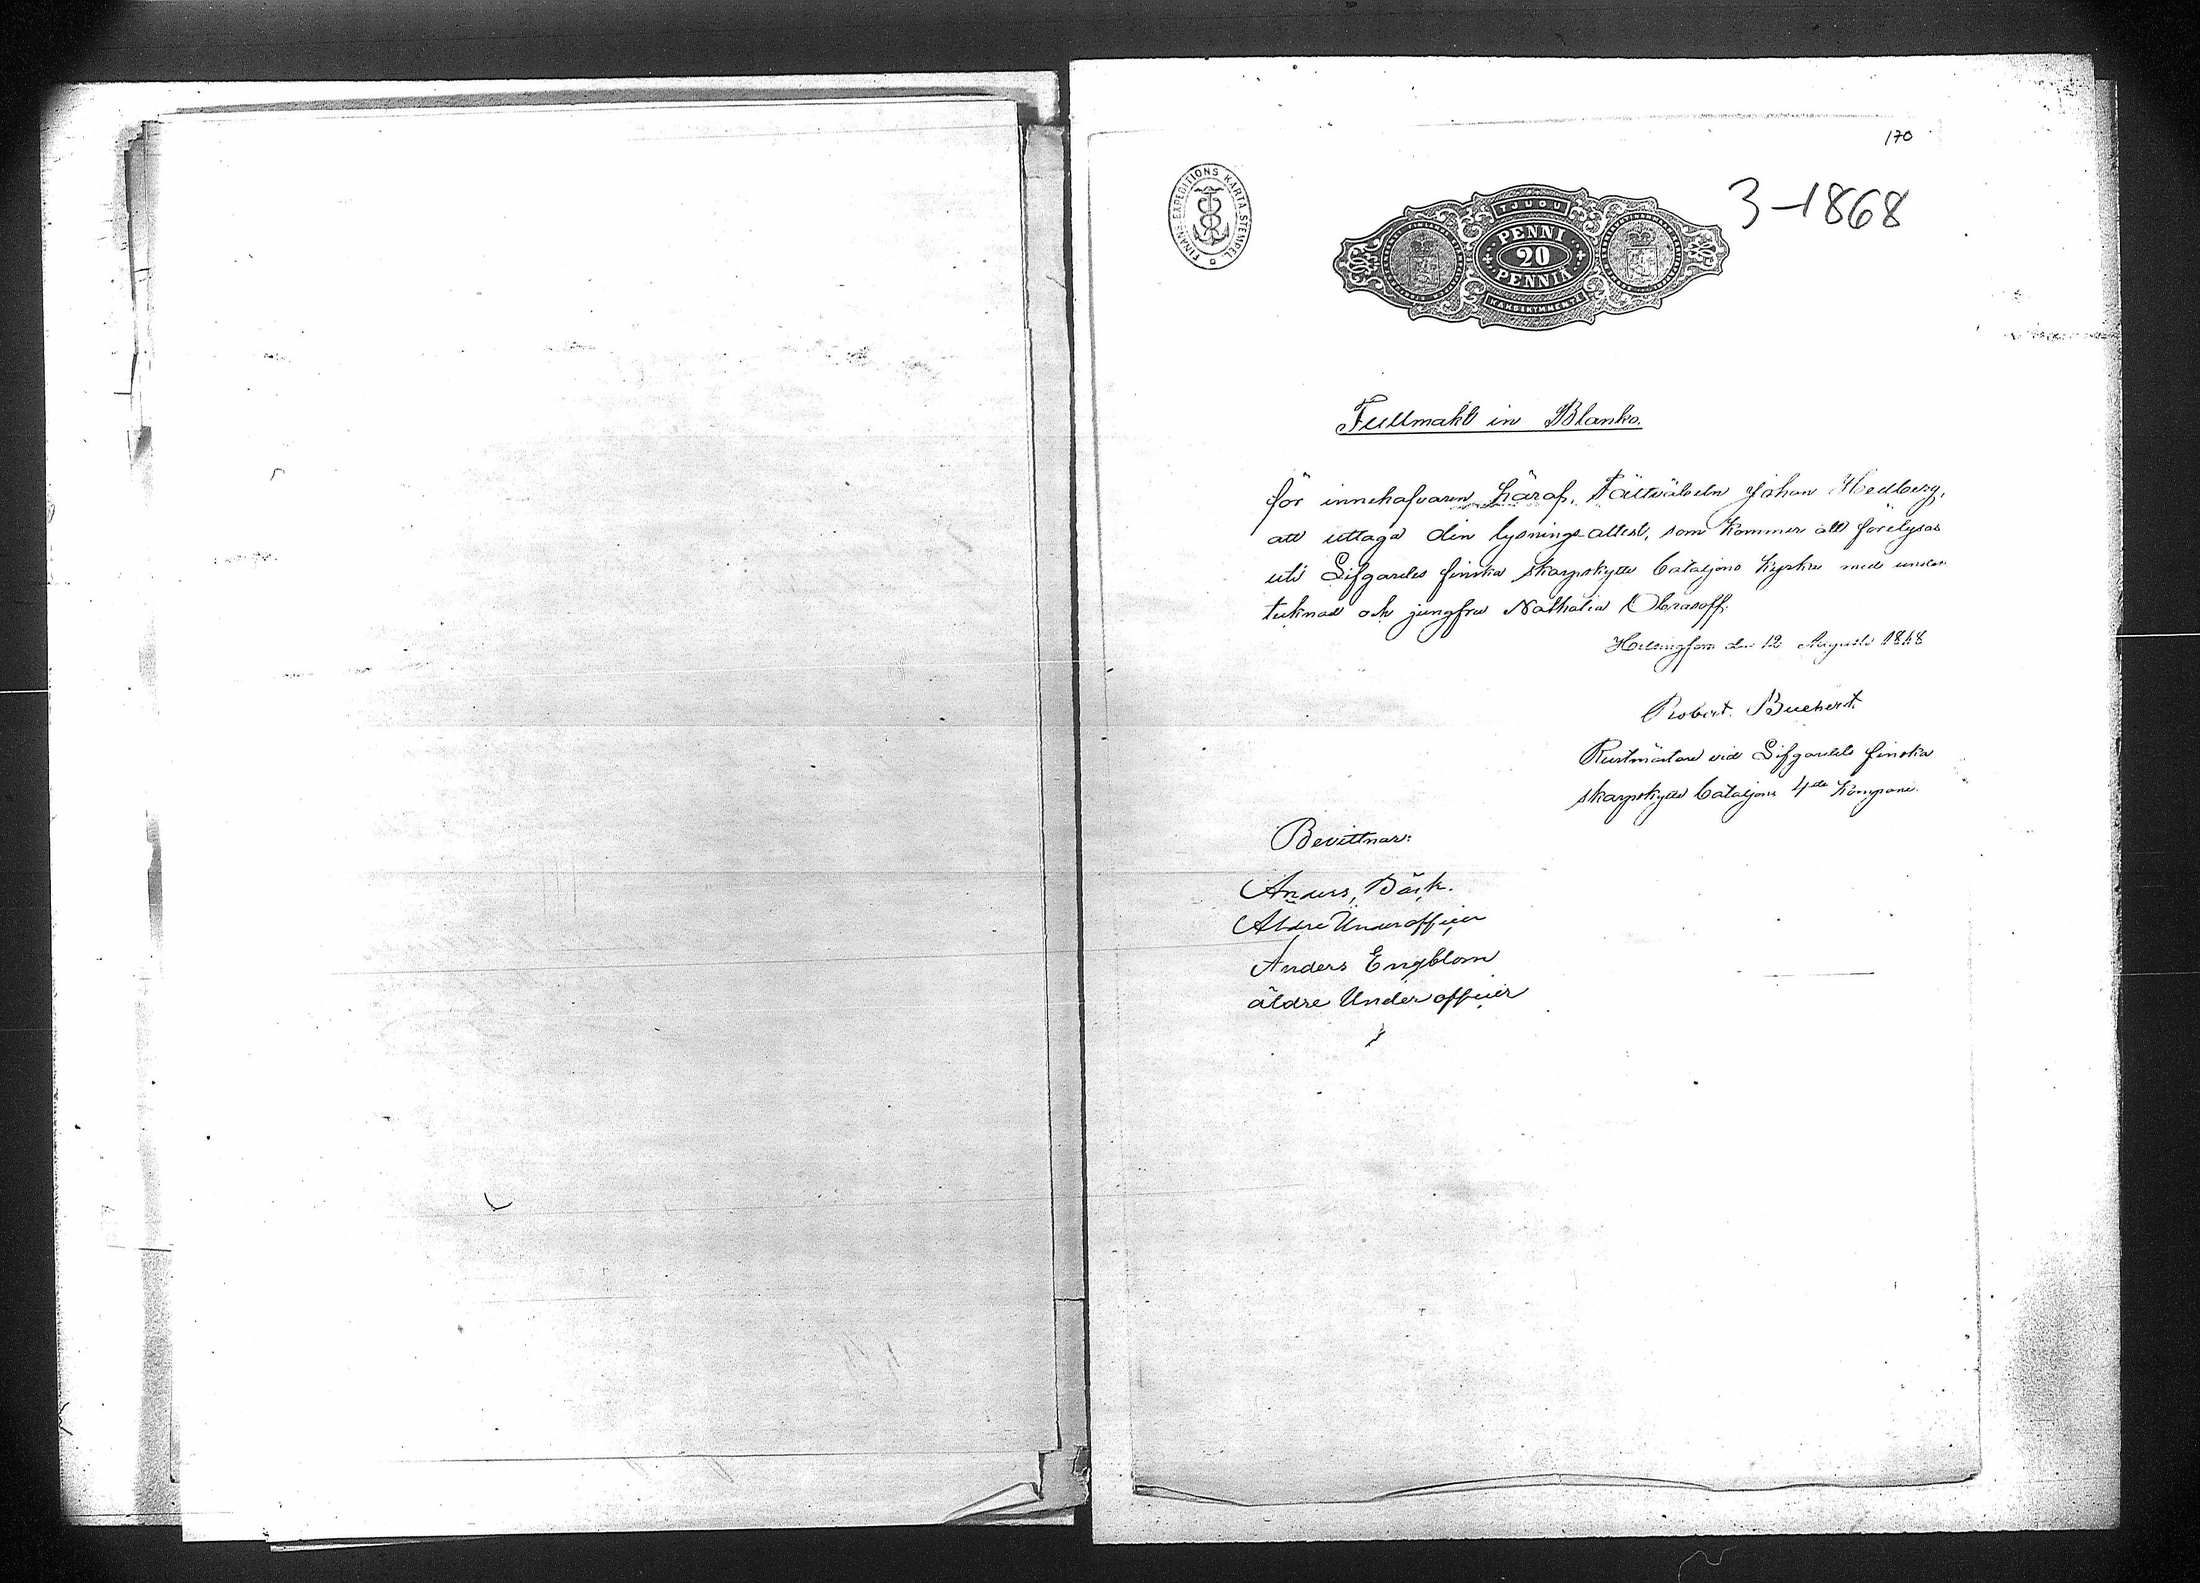 170
3-1868
FINANS-EXPEDITIONS KARTA STEMPEL
TJUGU
PENNI
20
PENNIÄ
KAKSIKYMMENTÄ
Fullmakt in Blanko.
för innehafvaren häraf, Fältväbeln Johan Hedberg,
att uttaga den lysnings-attest, som kommer att förelysas
uti Lifgardes finska skarpskytte bataljons kyrka med under
tecknad och jungfru Nathalia Obrasoff.
Helsingfors den 12 Augusti 1868
Robert. Buchert.
Rustmästare vid Lifgardets finska
skarpskytte bataljons 4de Kompani.
Bevittnar:
Anders Bäck.
Äldre Underofficer
Anders Engblom
äldre Underofficer